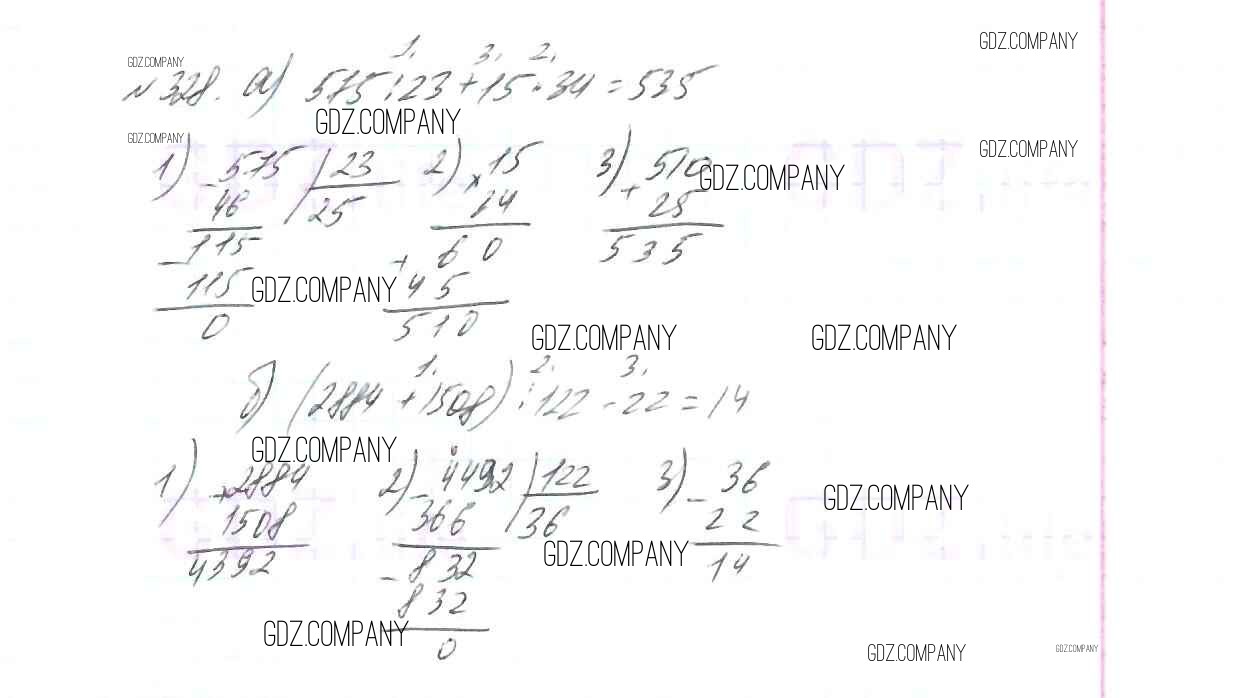 GDZ.COMPANY
GDZ.COMPANY
№328. а) 575:23+15·34=535
1. 3. 2.
GDZ.COMPANY
GDZ.COMPANY
GDZ.COMPANY
1) -575 | 23 2) ×15 3) +510 GDZ.COMPANY
46 25 14 25
-115 + 60 535
115 GDZ.COMPANY 45
0 510
GDZ.COMPANY GDZ.COMPANY
1. 2. 3.
б) (2884+1508):122-22=14
GDZ.COMPANY
1) +2884 2) -4492 | 122 3) -36 GDZ.COMPANY
1508 366 36 22
4392 -832 GDZ.COMPANY 14
832
GDZ.COMPANY 0
GDZ.COMPANY GDZ.COMPANY